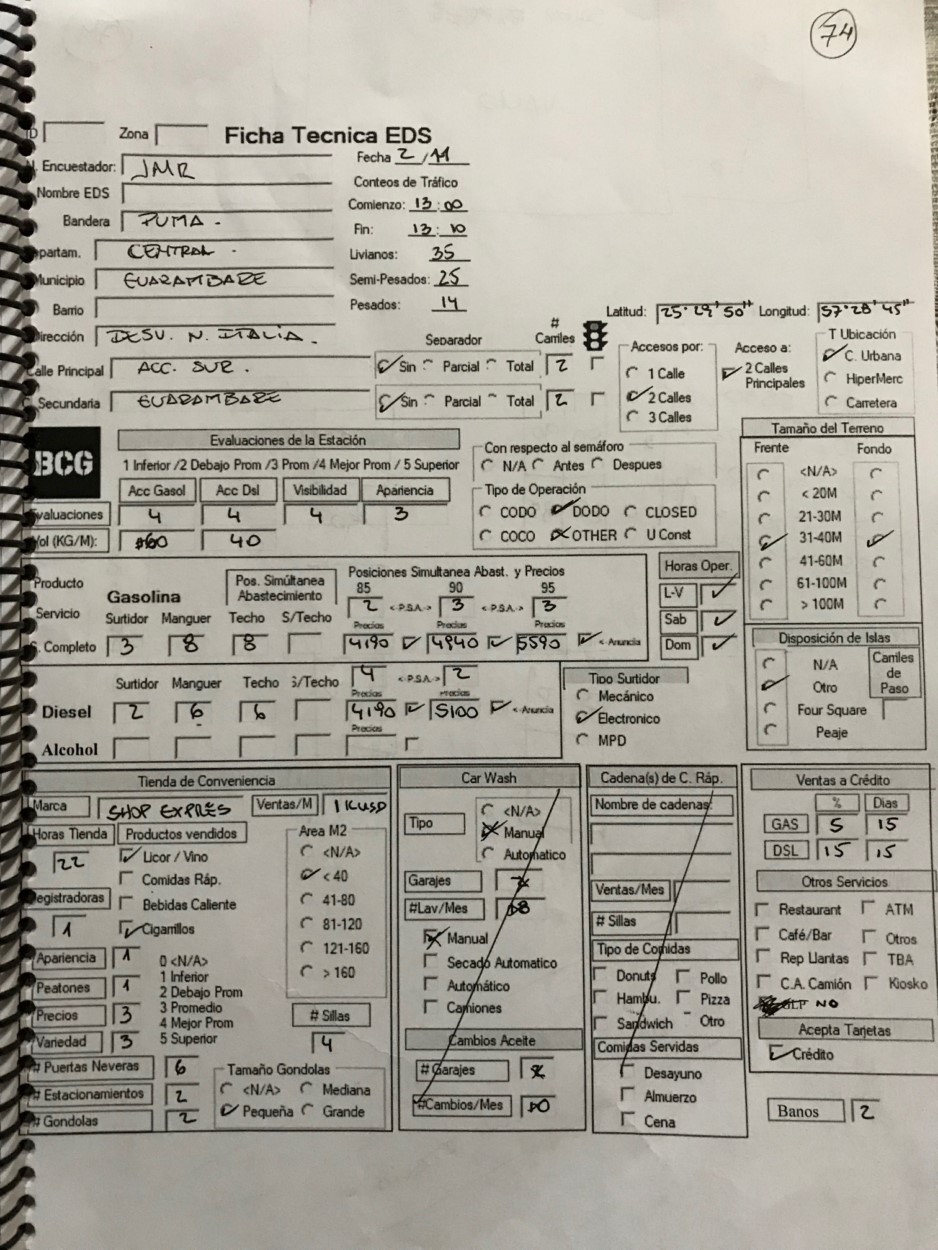 74
ID Zona Ficha Tecnica EDS
Encuestador: JMR Fecha 2/11
Nombre EDS Conteos de Tráfico
Bandera PUMA - Comienzo: 13:00
CENTRAL - Fin: 13:10
Municipio GUARAMBARE Livianos: 35
Semi-Pesados: 25
Barrio Pesados: 14
Latitud: 25° 29' 50" Longitud: 57° 28' 45"
Dirección DESV. N. ITALIA.
Separador # Carriles Accesos por: Acceso a: T Ubicación
Calle Principal ACC. SUR. Sin Parcial Total 2 1 Calle 2 Calles Principales C. Urbana
Secundaria GUARAMBARE Sin Parcial Total 2 2 Calles HiperMerc
3 Calles Carretera
BCG
Evaluaciones de la Estación
1 Inferior /2 Debajo Prom /3 Prom /4 Mejor Prom / 5 Superior
Acc Gasol Acc Dsl Visibilidad Apariencia
Evaluaciones 4 4 4 3
Vol (KG/M): 60 40
Con respecto al semáforo
N/A Antes Despues
Tipo de Operación
CODO DODO CLOSED
COCO OTHER U Const
Tamaño del Terreno
Frente Fondo
<N/A>
< 20M
21-30M
31-40M
41-60M
61-100M
> 100M
Producto Gasolina Pos. Simúltanea Abastecimiento Posiciones Simultanea Abast. y Precios
85 90 95
Servicio 2 <-P.S.A.-> 3 <-P.S.A.-> 3
Surtidor Manguer Techo S/Techo Precios Precios Precios
S. Completo 3 8 8 4190 4940 5590 <-Anuncia
Horas Oper.
L-V
Sab
Dom
4 <-P.S.A.-> 2
Surtidor Manguer Techo S/Techo Precios Precios
Diesel 2 6 6 4190 5100 <-Anuncia
Precios
Alcohol
Tipo Surtidor
Mecánico
Electronico
MPD
Disposición de Islas
N/A Carriles de Paso
Otro
Four Square
Peaje
Tienda de Conveniencia
Marca SHOP EXPRES Ventas/M 1KUSD
Horas Tienda Productos vendidos Area M2
22 Licor / Vino <N/A>
Comidas Ráp. < 40
Registradoras Bebidas Caliente 41-80
1 Cigarrillos 81-120
Apariencia 1 0 <N/A> 121-160
Peatones 1 1 Inferior > 160
2 Debajo Prom
Precios 3 3 Promedio # Sillas
4 Mejor Prom
Variedad 3 5 Superior 4
# Puertas Neveras 6 Tamaño Gondolas
# Estacionamientos 2 <N/A> Mediana
# Gondolas 2 Pequeña Grande
Car Wash
Tipo <N/A>
Manual
Automatico
Garajes
#Lav/Mes
Manual
Secado Automatico
Automático
Camiones
Cambios Aceite
# Garajes
#Cambios/Mes
Cadena(s) de C. Ráp.
Nombre de cadenas:
Ventas/Mes
# Sillas
Tipo de Comidas
Donuts Pollo
Hambu. Pizza
Sandwich Otro
Comidas Servidas
Desayuno
Almuerzo
Cena
Ventas a Crédito
% Dias
GAS 5 15
DSL 15 15
Otros Servicios
Restaurant ATM
Café/Bar Otros
Rep Llantas TBA
C.A. Camión Kiosko
NO
Acepta Tarjetas
Crédito
Banos 2